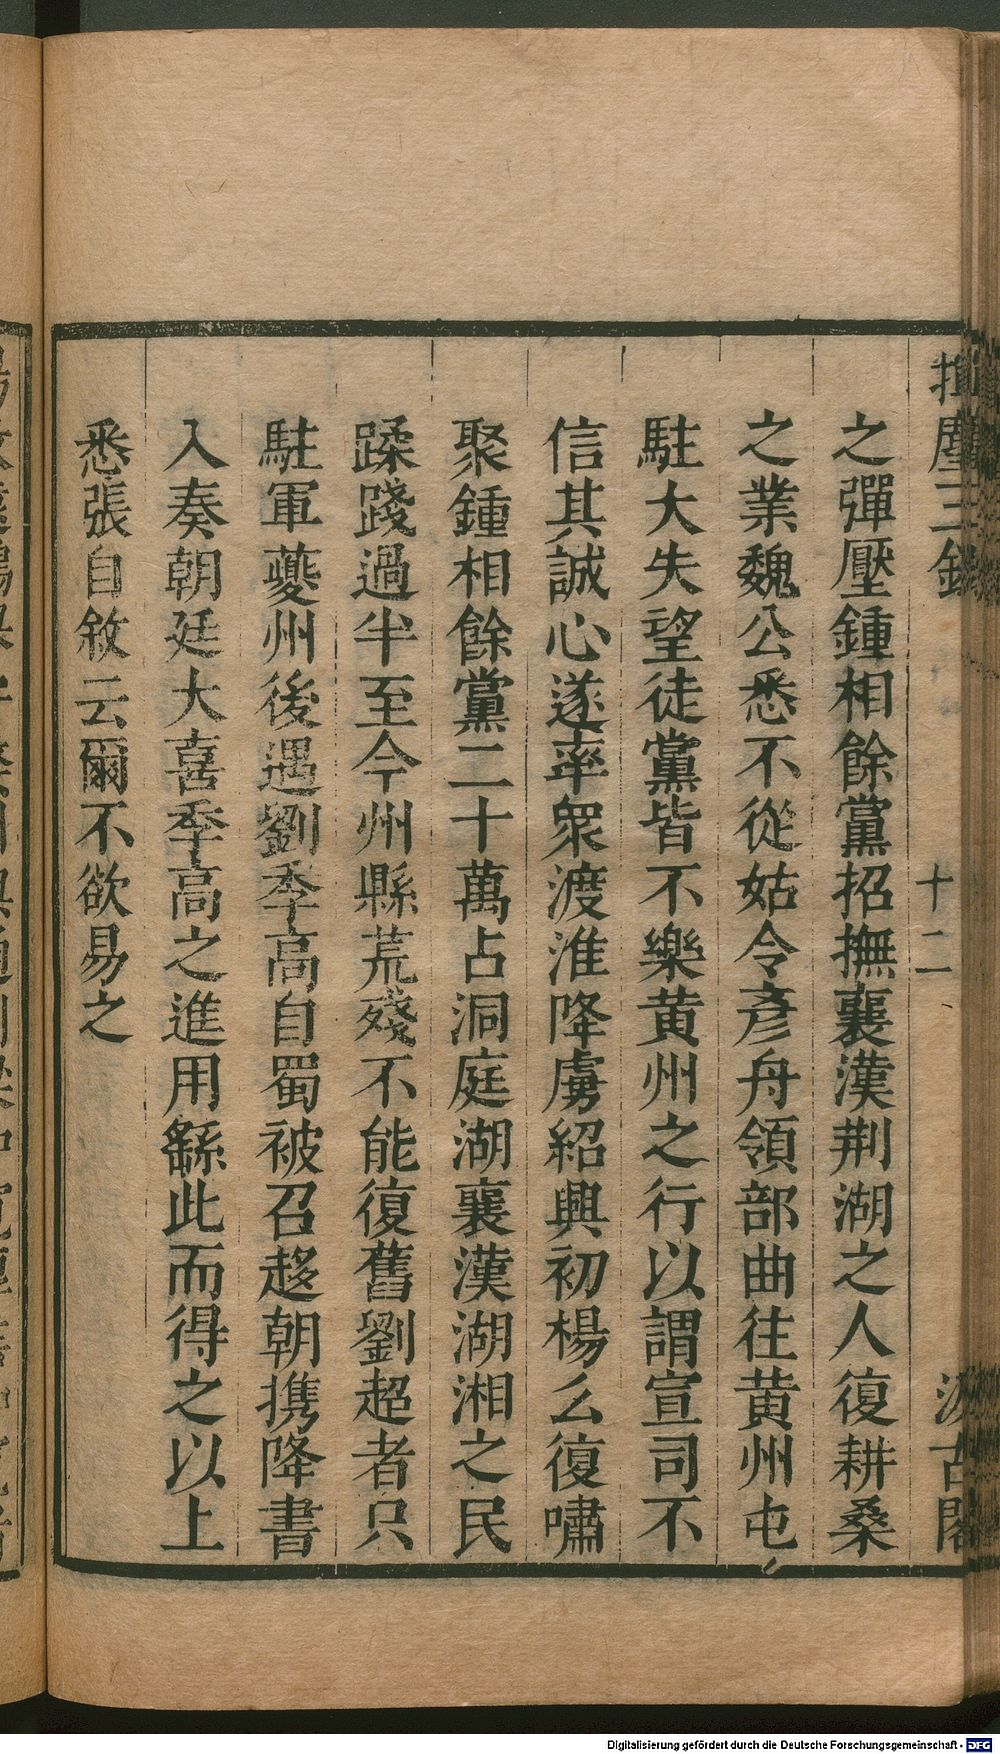 揮麈三錄
十二
汲古閣
之彈壓鍾相餘黨招撫襄漢荆湖之人復耕桑
之業魏公悉不從姑令彥舟領部曲往黃州屯
駐大失望徒黨皆不樂黃州之行以謂宣司不
信其誠心遂率衆渡淮降虜紹興初楊么復嘯
聚鍾相餘黨二十萬占洞庭湖襄漢湖湘之民
蹂踐過半至今州縣荒殘不能復舊劉超者只
駐軍夔州後遇劉季高自蜀被召趍朝携降書
入奏朝廷大喜季高之進用繇此而得之以上
悉張自敘云爾不欲易之
Digitalisierung gefördert durch die Deutsche Forschungsgemeinschaft - DFG